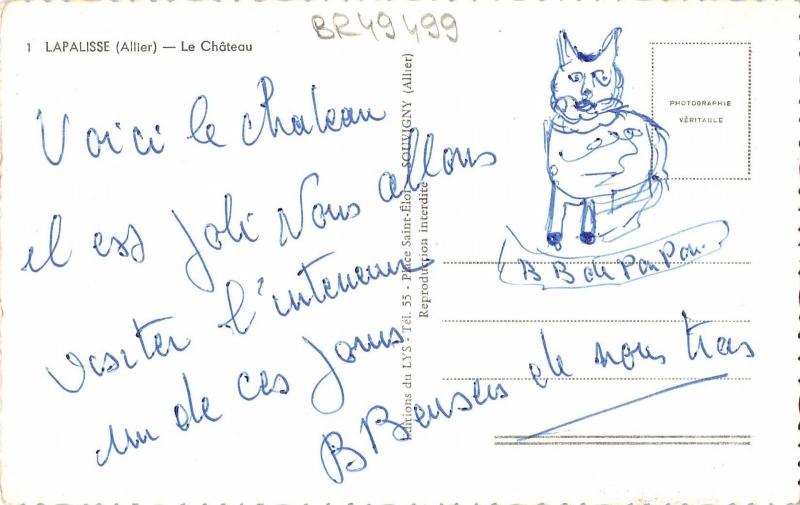 BR49499
1 LAPALISSE (Allier) — Le Château
PHOTOGRAPHIE
VÉRITABLE
Editions du LYS - Tél. 55 - Place Saint-Eloi - SOUVIGNY (Allier)
Reproduction interdite
Voici le chateau
il ess joli Nous allons
visiter l'interieur
un de ces jours
B Bensens de nous trois
B B de Pon Pon.